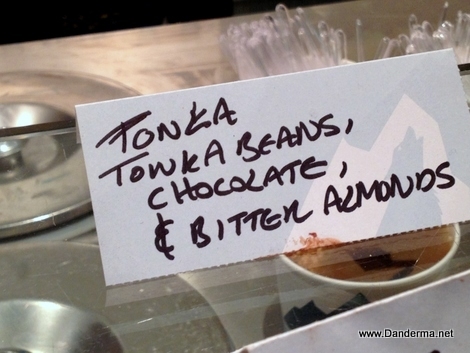 TONKA
TONKA BEANS,
CHOCOLATE,
& BITTER ALMONDS
www.Danderma.net